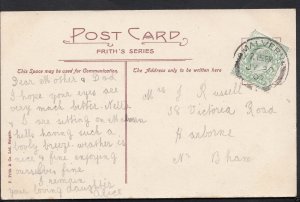 POST CARD
FRITH'S SERIES
This Space may be used for Communication.
The Address only to be written here
MALVERN
Dear Mother & Dad
I hope your eyes are
very much better. Nella &
I are sitting on Malvern
hills having such a
lovely breeze weather is
nice & fine enjoying
ourselves fine
I remain
your loving daughter
Alice
Mrs J Russell
38 Victoria Road
Harborne
Nr B'ham
F. Frith & Co. Ltd. Reigate.